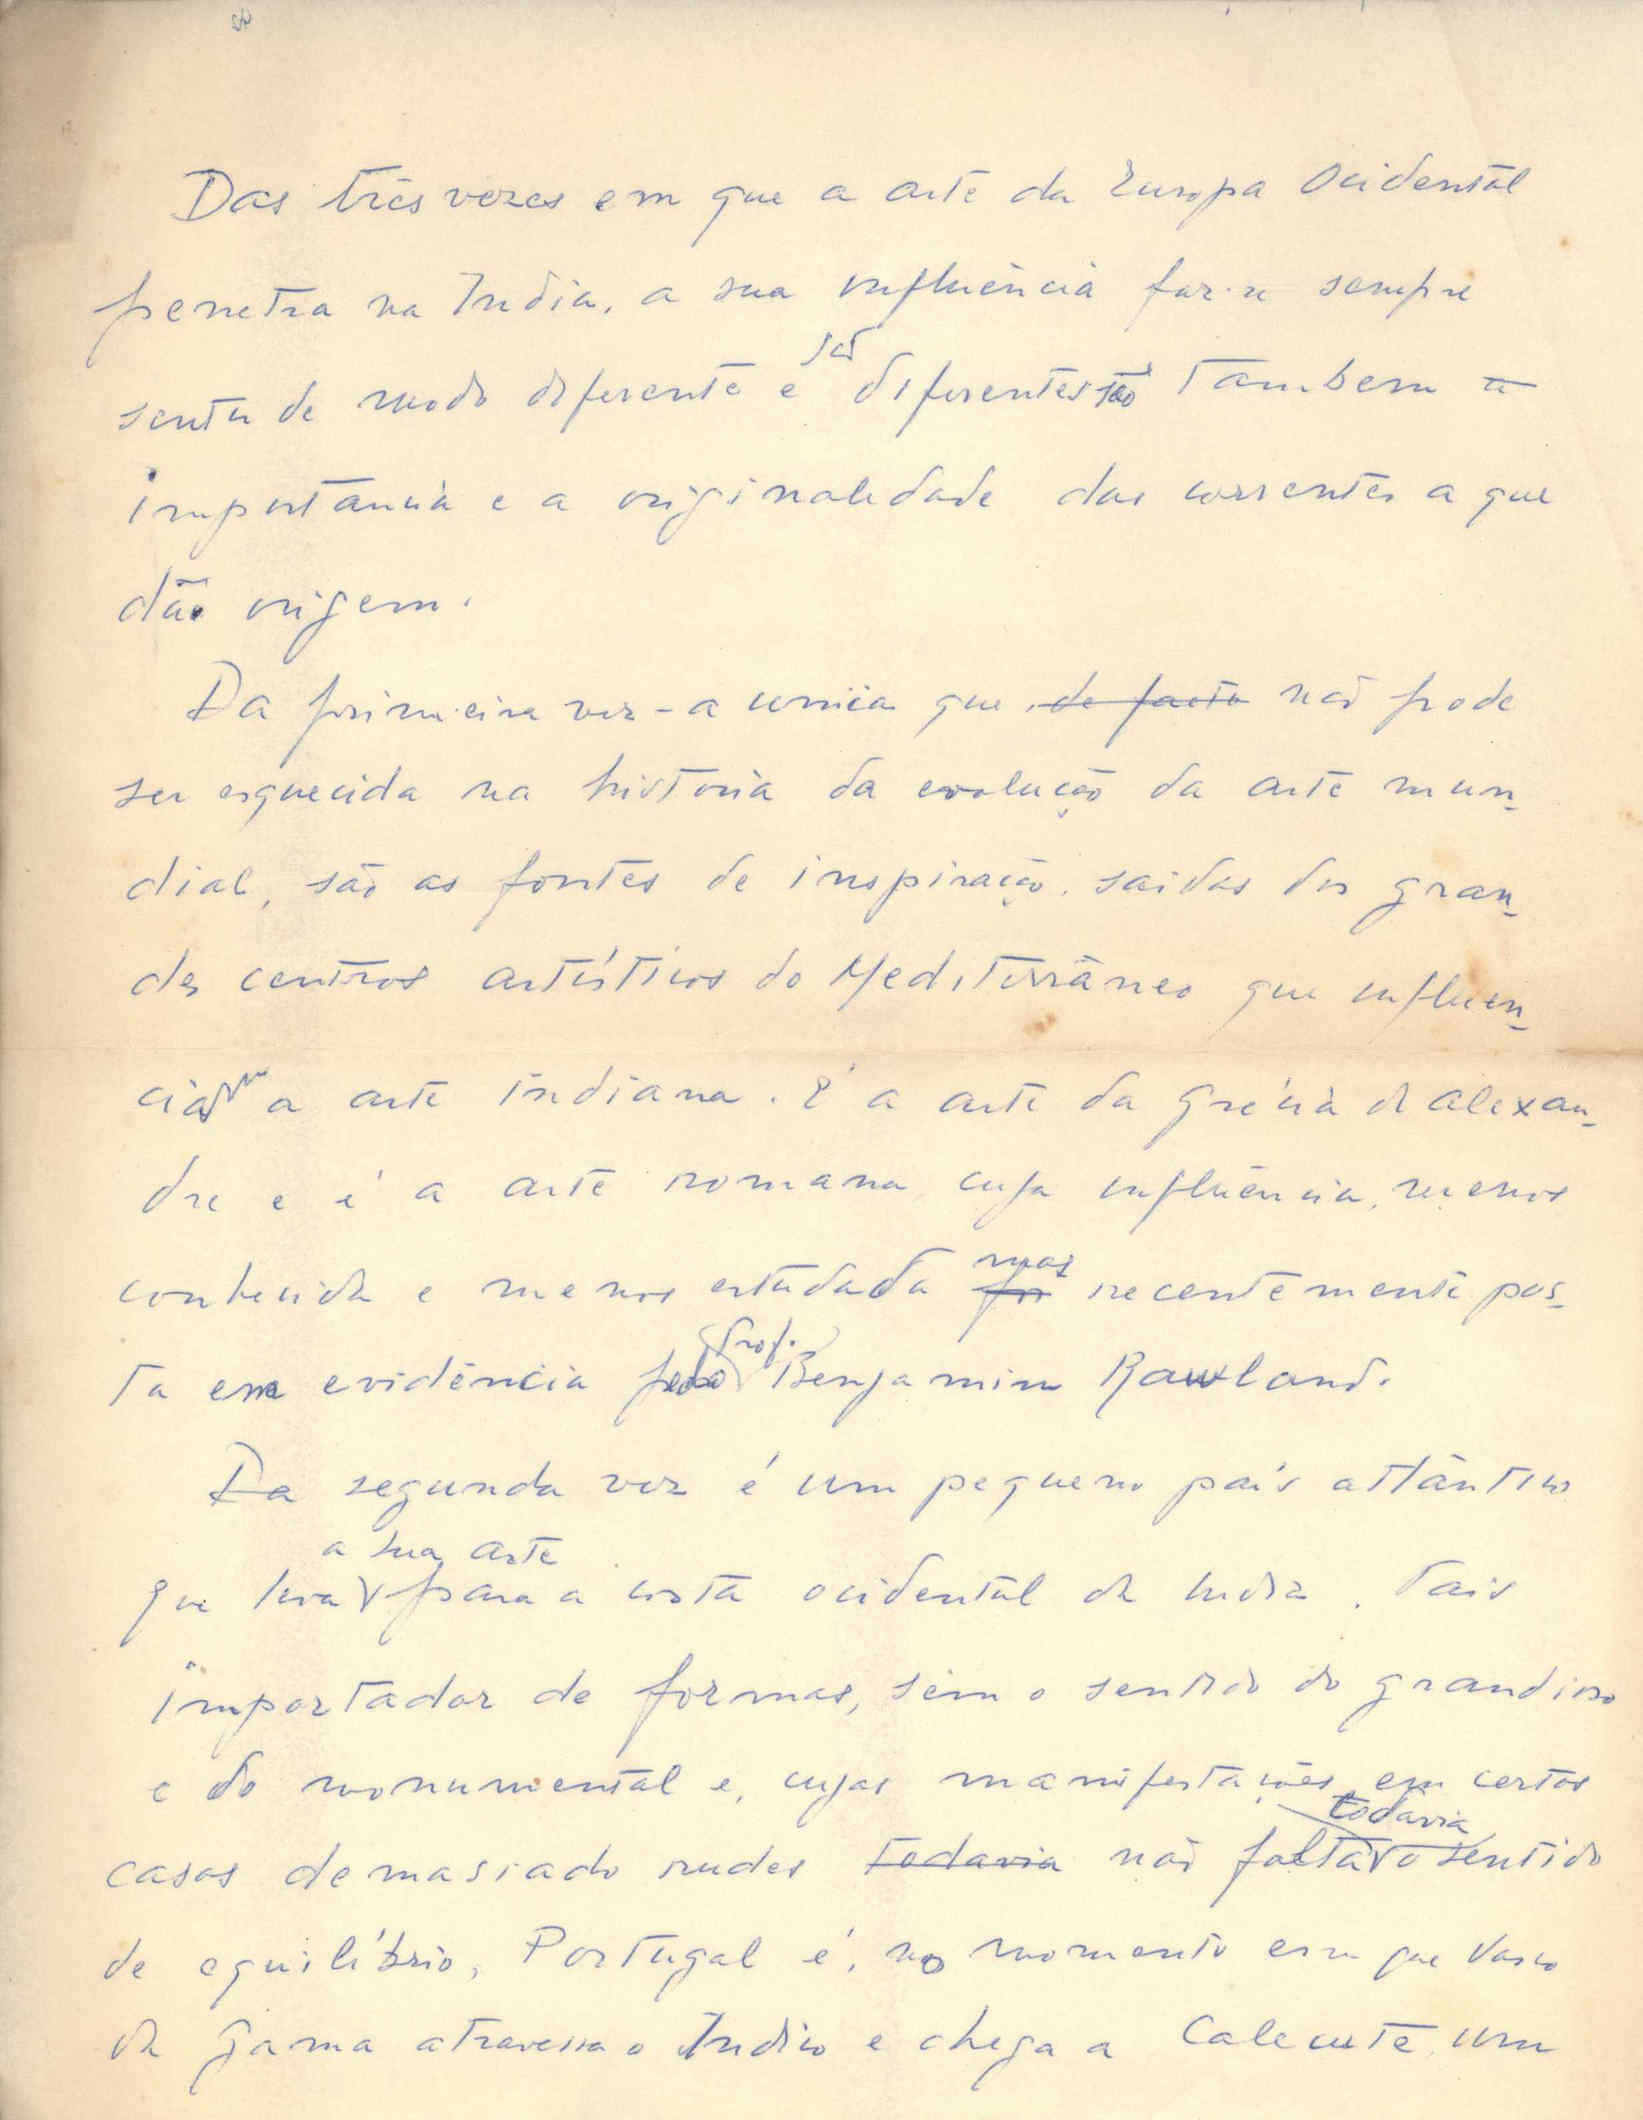 Das três vezes em que a arte da Europa Ocidental
penetra na India, a sua influência faz-se sempre
sentir de modo diferente e são diferentes tão tambem a
importância e a originalidade das correntes a que
dão origem.
Da primeira vez - a unica que, de facto não pode
ser esquecida na história da evolução da arte mun-
dial, são as fontes de inspiração, saidas dos gran-
des centros artísticos do Mediterrâneo que influen-
ciam a arte indiana. É a arte da Grécia de Alexan-
dre e é a arte romana cuja influência, menos
conhecida e menos estudada foi mas recentemente pos-
ta em evidência pelo Prof. Benjamim Rawland.
Da segunda vez é um pequeno país atlântico
que leva a sua arte para a costa ocidental da India. País
importador de formas, sem o sentido do grandioso
e do monumental e, cujas manifestações em certos
casos demasiado rudes todavia não falta todavia o sentido
de equilíbrio, Portugal é, no momento em que Vasco
da Gama atravessa o Indico e chega a Calecute, um